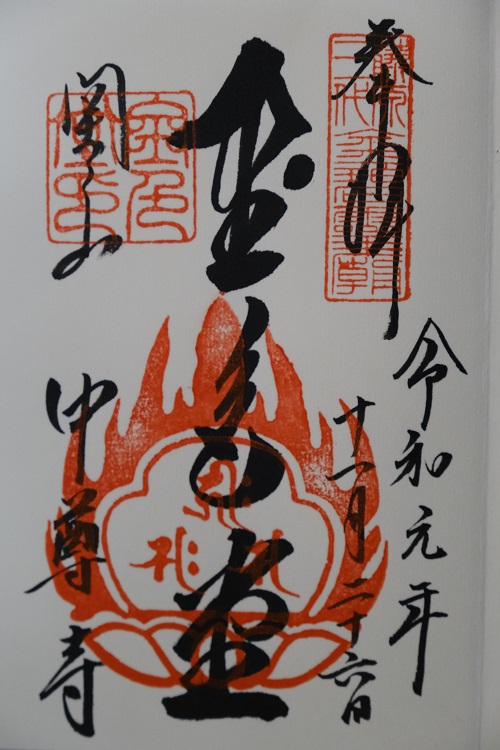 奉拝
令和元年
十一月二十六日
金色堂
関山
中尊寺